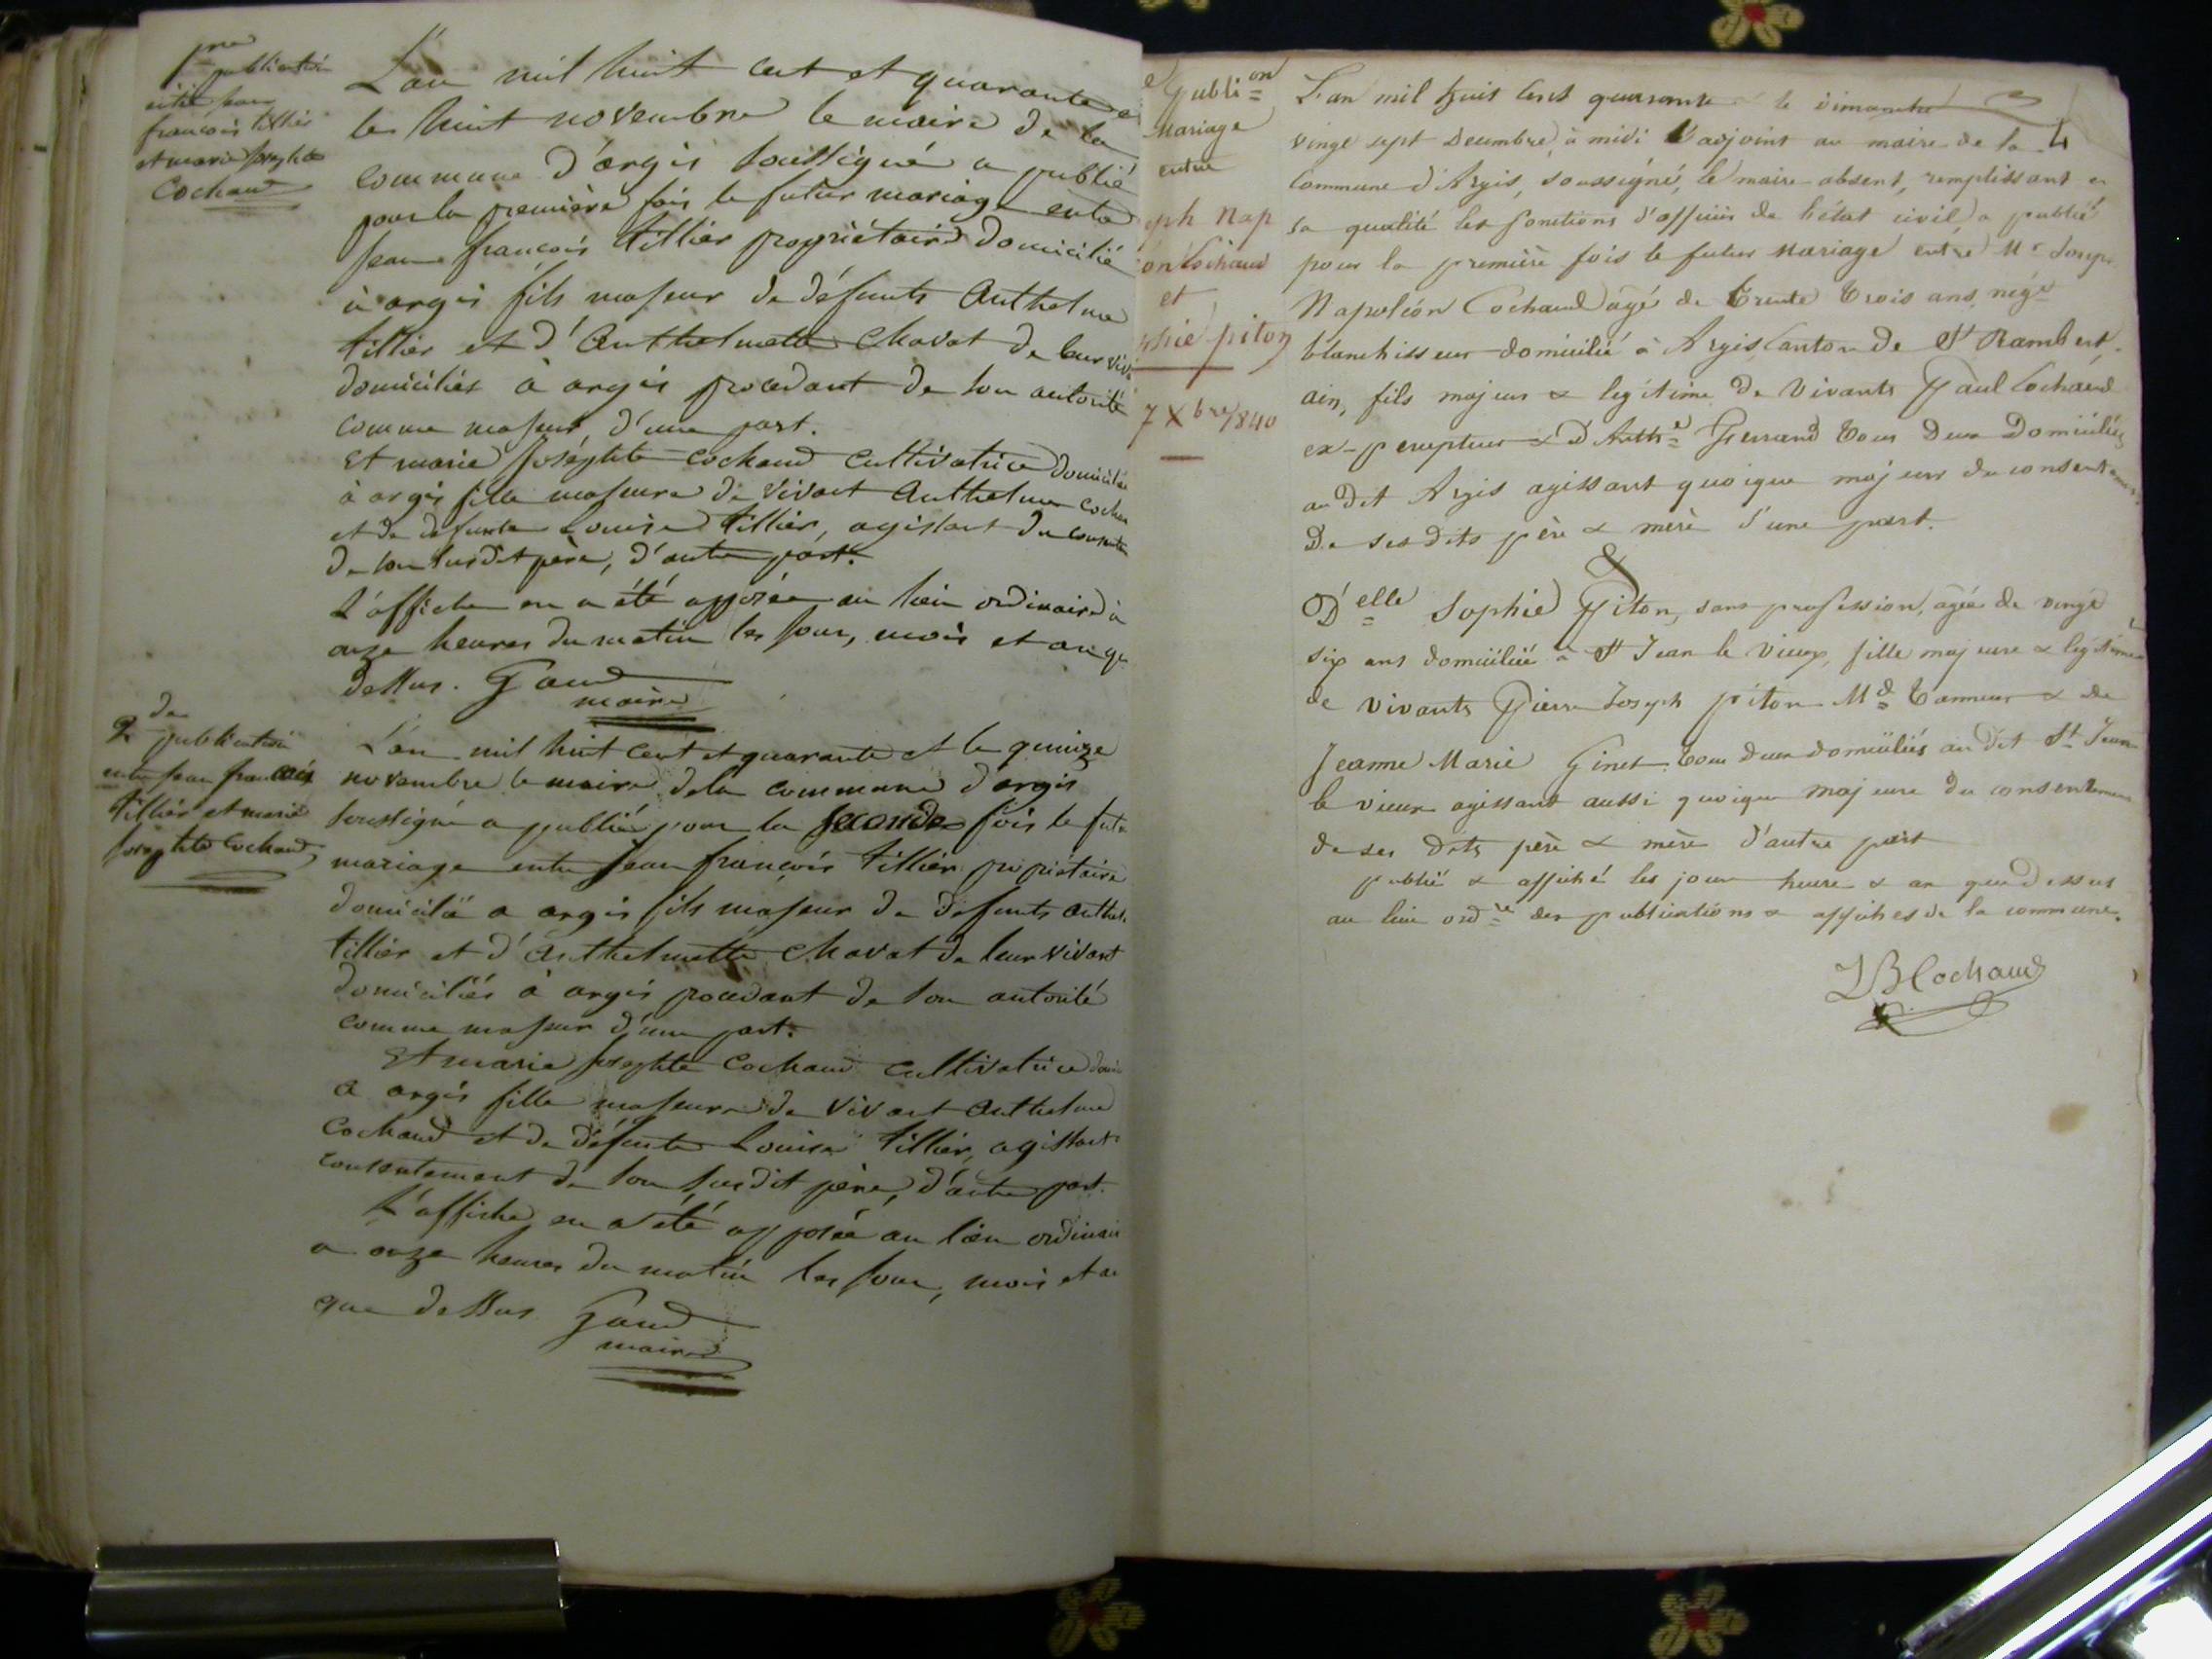 pre
publication
entre jean
françois tillier
et marie josephte
Cochaud
L'an mil huit cent et quarante et
le huit novembre le maire de la
commune d'argis soussigné a publié
pour la première fois le futur mariage entre
jean françois tillier propriétaire domicilié
à argis fils majeur de défunts Anthelme
tillier et d'Anthelmette Chavat de leur viv
domiciliés à argis procedant de son autorité
comme majeur, d'une part.
Et marie josephte cochaud cultivatrice domiciliée
à argis fille majeure de vivant Anthelme cochau
et de defunte Louise tillier, agissant du consente
de son susdit père, d'autre part.
L'affiche en a été apposée au lieu ordinaire à
onze heures du matin les jour, mois et an que
dessus. Gaud
maire
2de
publication
entre jean francois
tillier et marie
josephte cochaud
L'an mil huit cent et quarante et le quinze
novembre le maire de la commune d'argis
soussigné a publié pour la seconde fois le futu
mariage entre jean françois tillier propriétaire
domicilié a argis fils majeur de defunts anthel
tillier et d'Anthelmette Chavat de leur vivant
domiciliés à argis procedant de son autorité
comme majeur d'une part.
Et marie josephte cochaud cultivatrice domi
a argis fille majeure de vivant Anthelme
cochaud et de défunte Louise tillier, agissant
consentement de son susdit père, d'autre part.
L'affiche en a été apposée au lieu ordinair
a onze heures du matin les jour, mois et an
que dessus Gaud
maire
e publi=on
Mariage
entre
eph Nap
on Cochaud
et
phie piton
7 Xbre 1840
L'an mil huit cent quarante & le dimanche
vingt sept Decembre, à midi L'adjoint au maire de la
commune d'Argis, soussigné, le maire absent, remplissant en
sa qualité les fonctions d'officier de l'état civil, a publié
pour la première fois le futur Mariage entre Mr Josep
Napoléon Cochaud âgé de trente trois ans, nég=t
blanchisseur domicilié à Argis canton de St Rambert
ain, fils majeur & legitime de vivants Paul Cochaud
ex-percepteur & D'Anth=e Gerrand tous deux domiciliés
au dit Argis agissant quoique majeur du consentement
De ses dits père & mère d'une part.
&
D'elle Sophie Piton, sans profession, agée de vingt
six ans domiciliée à St Jean le Vieux, fille majeure & legitime
de vivants Pierre Joseph piton Md Tanneur & de
Jeanne Marie Ginet tous deux domiciliés au dit St Jean
le vieux agissant aussi quoique majeure du consentement
de ses dits père & mère d'autre part
publié & affiché les jour heure & an que dessus
au lieu ord=re des publications & affiches de la commune.
JB Cochaud